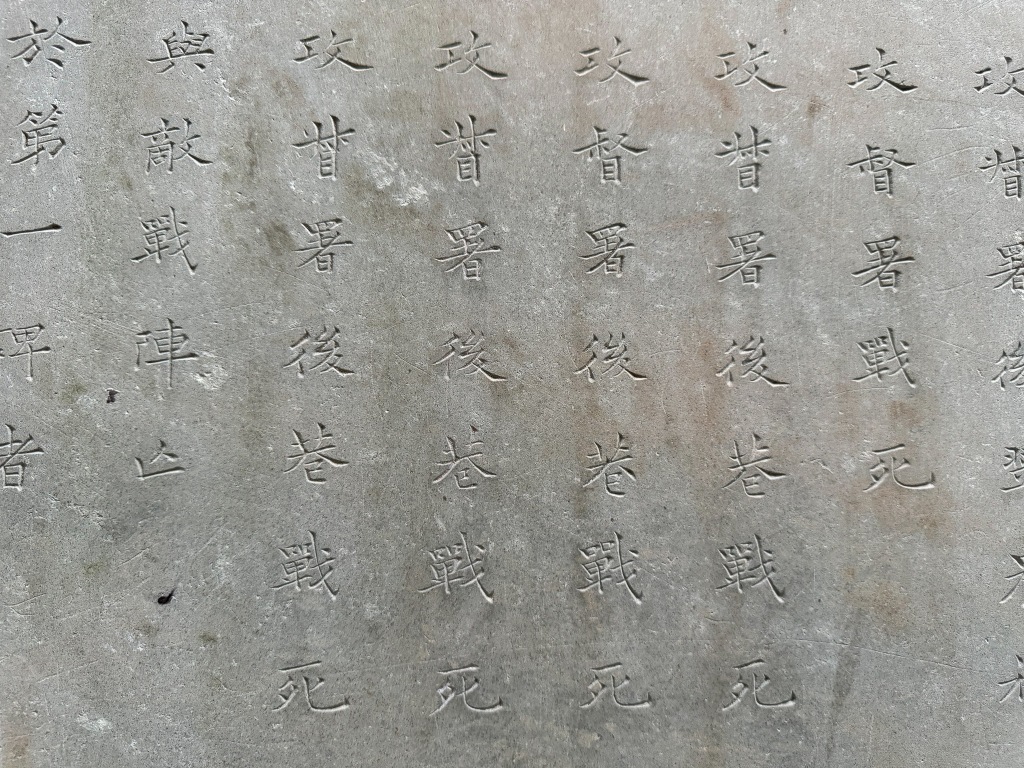 攻督署後
攻督署戰死
攻督署後巷戰死
攻督署後巷戰死
攻督署後巷戰死
攻督署後巷戰死
與敵戰陣亡
於第一碑者